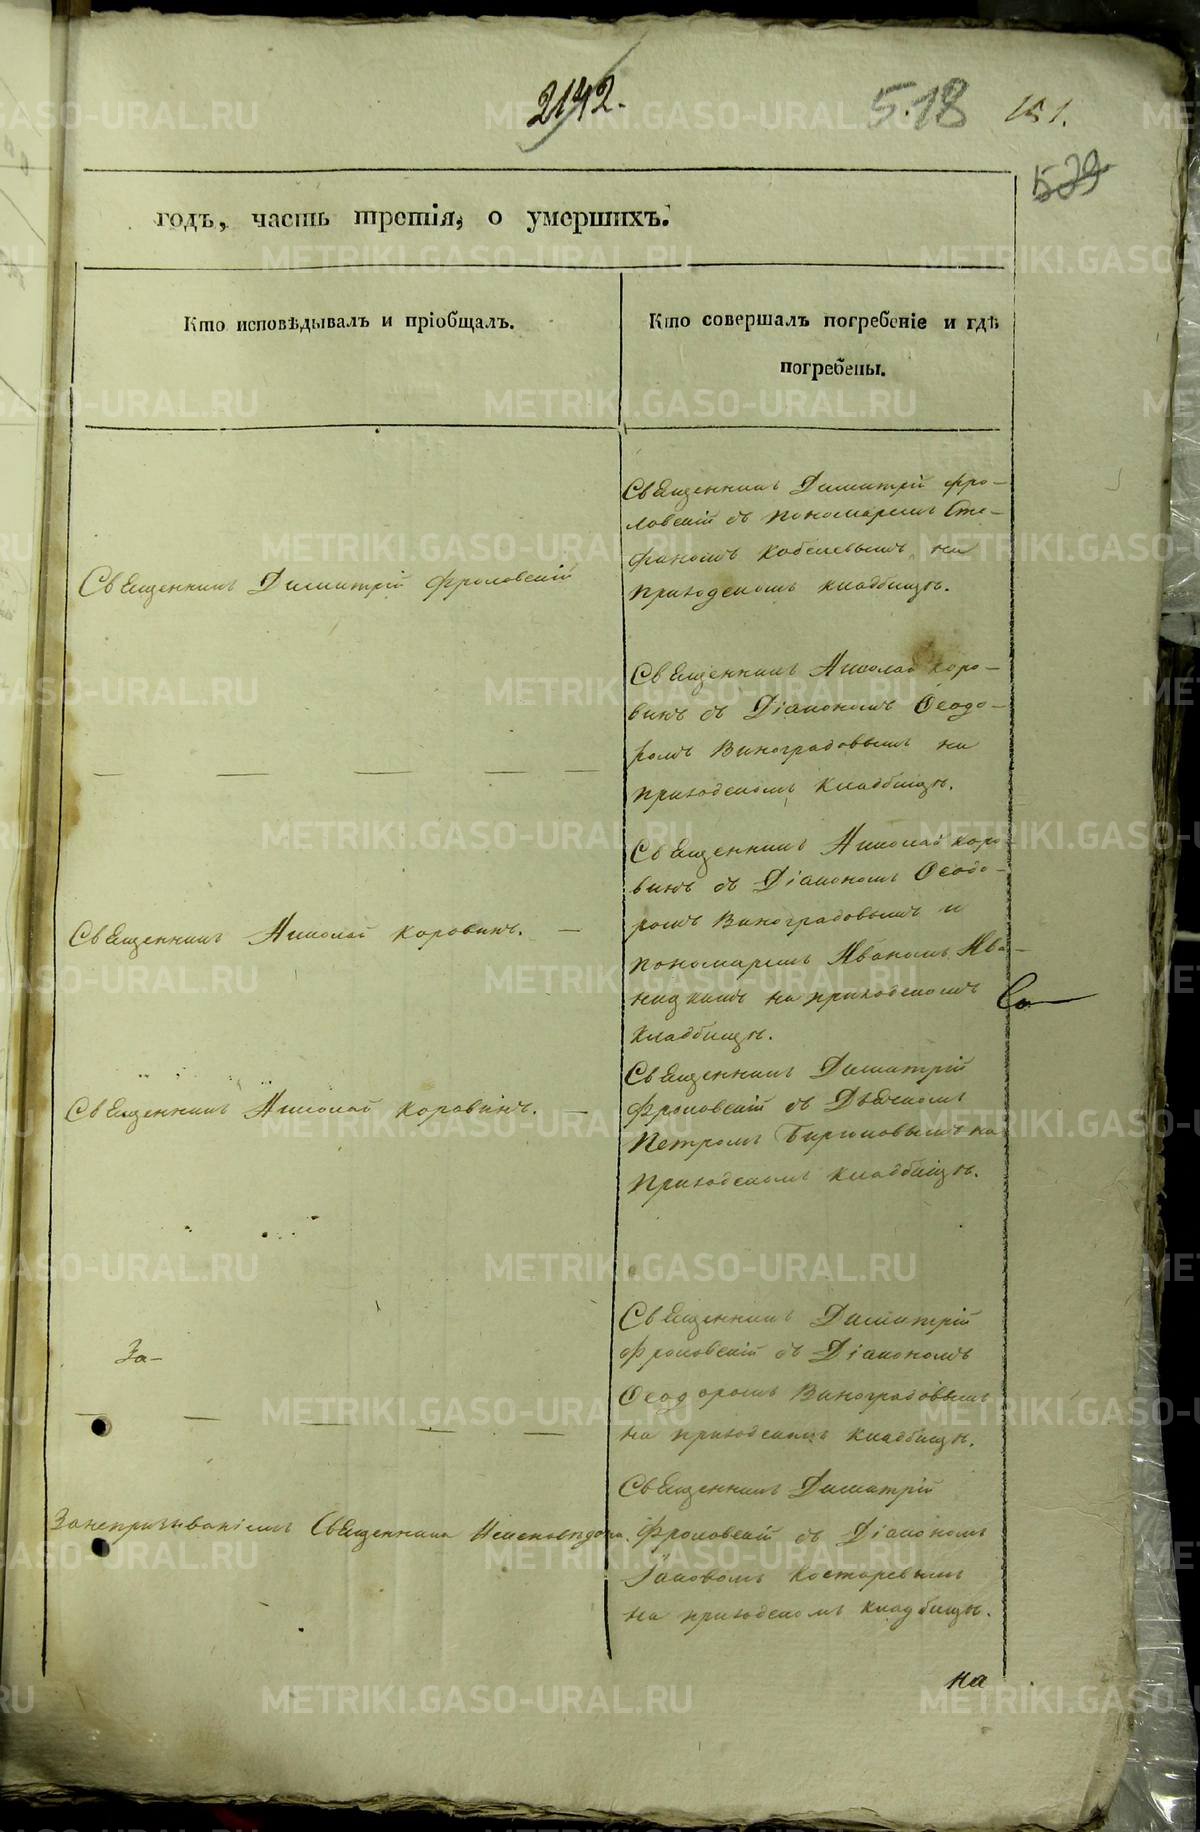 2142.
518
151.
529
годъ, часть третія, о умершихъ.
Кто исповѣдывалъ и пріобщалъ.
Кто совершалъ погребеніе и гдѣ
погребены.
Священникъ Димитрій Фроловскій
Священникъ Димитрій Фро-
ловскій съ пономаремъ Сте-
фаномъ Кобелевымъ на
приходскомъ кладбищѣ.
— — — — —
Священникъ Николай Коро-
винъ съ Діакономъ Ѳеодо-
ромъ Виноградовымъ на
приходскомъ кладбищѣ.
Священникъ Николай Коровинъ. —
Священникъ Николай Коро-
винъ съ Діакономъ Ѳеодо-
ромъ Виноградовымъ и
пономаремъ Иваномъ Ива-
ницкимъ на приходскомъ
кладбищѣ.
Священникъ Николай Коровинъ. —
Священникъ Димитрій
Фроловскій съ Дьячкомъ
Петромъ Бирюковымъ на
приходскомъ кладбищѣ.
За-
— — — — —
Священникъ Димитрій
Фроловскій съ Діакономъ
Ѳеодоромъ Виноградовымъ
на приходскомъ кладбищѣ.
Занепризываніемъ Священника Неисповѣдана.
Священникъ Димитрій
Фроловскій съ Діакономъ
Іаковомъ Костаревымъ
на приходскомъ кладбищѣ.
на
METRIKI.GASO-URAL.RU